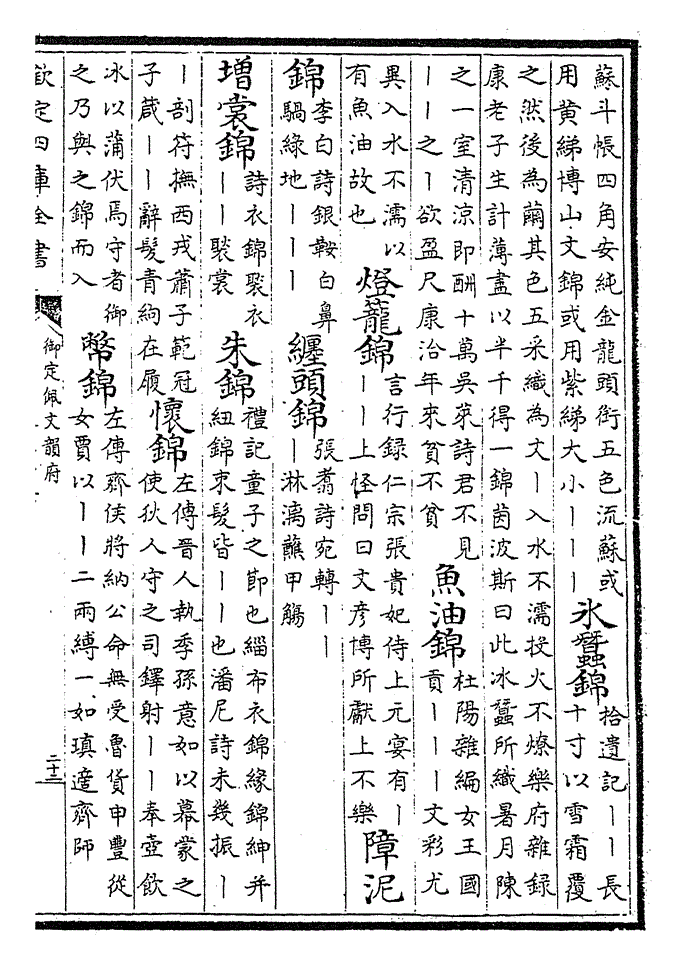 蘇斗帳四角安純金龍頭銜五色流蘇或
用黄綈博山文錦或用紫綈大小丨丨丨
氷蠶錦
拾遺記丨丨長
十寸以雪霜覆
之然後為繭其色五采織為文丨入水不濡投火不燎樂府雜録
康老子生計薄盡以半千得一錦茵波斯曰此冰蠶所織暑月陳
之一室清涼即酬十萬吳萊詩君不見
丨丨之丨欲盈尺康治年來貧不貧
魚油錦
杜陽雜編女王國
貢丨丨丨文彩尤
異入水不濡以
有魚油故也
燈籠錦
言行録仁宗張貴妃侍上元宴有丨
丨丨上怪問曰文彥博所獻上不樂
障泥
錦
李白詩銀鞍白鼻
騧綠地丨丨丨
纏頭錦
張翥詩宛轉丨丨
丨淋漓蘸甲觴
增裳錦
詩衣錦褧衣
丨丨褧裳
朱錦
禮記童子之節也緇布衣錦緣錦紳并
紐錦束髮皆丨丨也潘尼詩未幾振丨
丨剖符撫西戎蕭子範冠
子箴丨丨辭髮青絢在履
懷錦
左傳晉人執季孫意如以幕蒙之
使狄人守之司鐸射丨丨奉壺飲
冰以蒲伏焉守者御
之乃與之錦而入
幣錦
左傳齊侯將納公命無受魯貨申豐從
女賈以丨丨二兩縛一如瑱適齊師
欽定四庫全書
御定佩文韻府
二十三